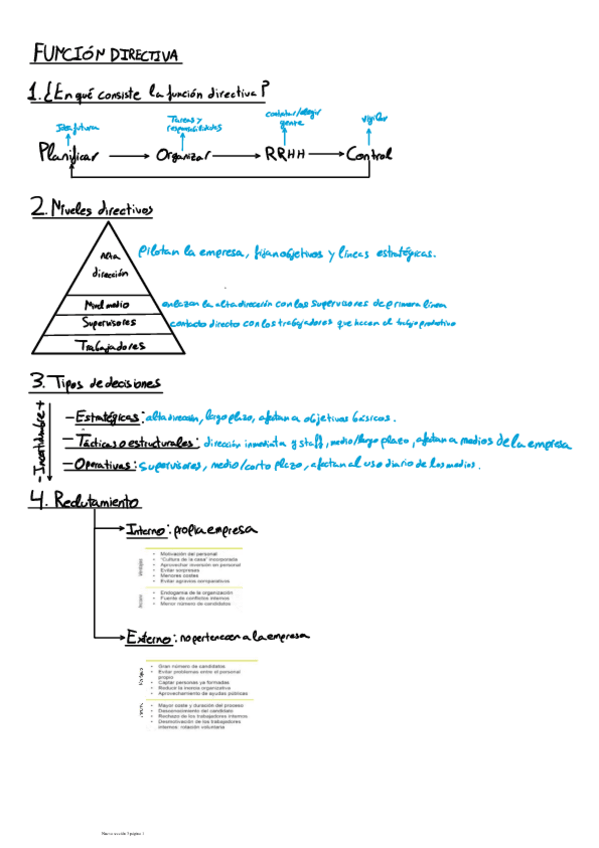 FUNCIÓN DIRECTIVA
1. ¿En qué consiste la función directiva?
Idea futura
Tareas y responsabilidades
contratar/elegir gente
vigilar
Planificar → Organizar → RRHH → Control
2. Niveles directivos
Alta dirección
Pilotan la empresa, fijan objetivos y líneas estratégicas.
Nivel medio
enlazan la alta dirección con los supervisores de primera línea
Supervisores
contacto directo con los trabajadores que hacen el trabajo productivo
Trabajadores
3. Tipos de decisiones
- Incertidumbre +
- Estratégicas: alta dirección, largo plazo, afectan a objetivos básicos.
- Tácticas o estructurales: dirección inmediata y staff, medio/largo plazo, afectan a medios de la empresa
- Operativas: supervisores, medio/corto plazo, afectan al uso diario de los medios.
4. Reclutamiento
Interno: propia empresa
Ventajas
• Motivación del personal
• "Cultura de la casa" incorporada
• Aprovechar inversión en personal
• Evitar sorpresas
• Menores costes
• Evitar agravios comparativos
• Endogamia de la organización
• Fuente de conflictos internos
• Menor número de candidatos
Externo: no pertenecen a la empresa
• Gran número de candidatos
• Evitar problemas entre el personal propio
• Captar personas ya formadas
• Reducir la inercia organizativa
• Aprovechamiento de ayudas públicas
• Mayor coste y duración del proceso
• Desconocimiento del candidato
• Rechazo de los trabajadores internos
• Desmotivación de los trabajadores internos: rotación voluntaria